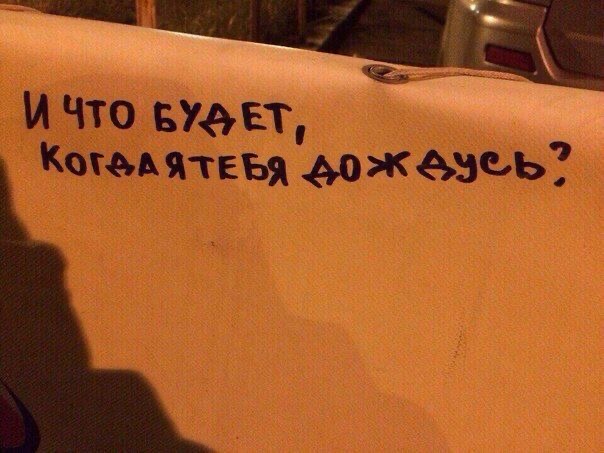 И ЧТО БУДЕТ,
КОГДА Я ТЕБЯ ДОЖДУСЬ?